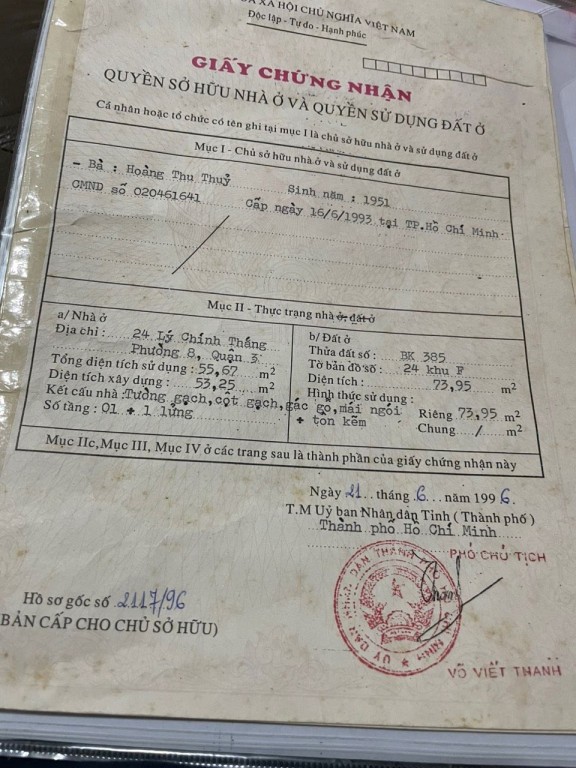 XÃ HỘI CHỦ NGHĨA VIỆT NAM
Độc lập - Tự do - Hạnh phúc
GIẤY CHỨNG NHẬN
QUYỀN SỞ HỮU NHÀ Ở VÀ QUYỀN SỬ DỤNG ĐẤT Ở
Cá nhân hoặc tổ chức có tên ghi tại mục I là chủ sở hữu nhà ở và sử dụng đất ở
Mục I - Chủ sở hữu nhà ở và sử dụng đất ở
- Bà : Hoàng Thu Thuỷ Sinh năm : 1951
CMND số 020461641 Cấp ngày 16/6/1993 tại TP.Hồ Chí Minh
Mục II - Thực trạng nhà ở, đất ở
a/ Nhà ở
Địa chỉ : 24 Lý Chính Thắng
Phường 8, Quận 3
Tổng diện tích sử dụng : 55,67 m2
Diện tích xây dựng : 53,25 m2
Kết cấu nhà : Tường gạch, cột gạch, gác gỗ, mái ngói
+ tôn kẽm
Số tầng : 01 + 1 lửng
b/ Đất ở
Thửa đất số : BK 385
Tờ bản đồ số : 24 khu F
Diện tích : 73,95 m2
Hình thức sử dụng :
Riêng 73,95 m2
Chung / m2
Mục IIc, Mục III, Mục IV ở các trang sau là thành phần của giấy chứng nhận này
Ngày 21 tháng 6 năm 1996
T.M Uỷ ban Nhân dân Tỉnh ( Thành phố )
Thành phố Hồ Chí Minh
PHÓ CHỦ TỊCH
VÕ VIẾT THANH
Hồ sơ gốc số 2117/96
(BẢN CẤP CHO CHỦ SỞ HỮU)